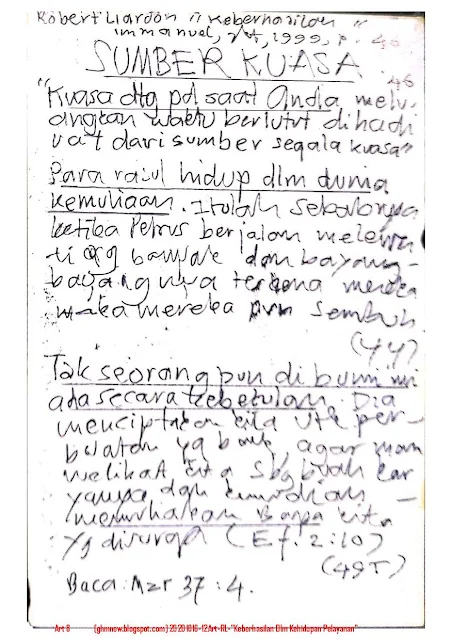 Robert Liardon "Keberhasilan"
immanuel, Jkt, 1999, p. 46
SUMBER KUASA
46
"Kuasa dtg pd saat Anda melu-
angkan waktu berlutut dihadi
rat dari sumber segala kuasa"
Para rasul hidup dlm dunia
kemuliaan. Itulah sebabnya
ketika Petrus berjalan melewa
ti org banyak dan bayang-
bayangnya terkena mereka
maka mereka pun sembuh
(44)
Tak seorang pun di bumi ini
ada secara kebetulan. Dia
menciptakan kita utk per-
buatan yg baik, agar
melihat kita sbg buah kar
yanya dan kemudian
memuliakan Bapa kita
yg disurga (Ef. 2:10)
(49T)
Baca: Mzr 37:4.
Art 6 (ghmnew.blogspot.com) 20201016-12Art-RL-"Keberhasilan Dlm Kehidupan Pelayanan"